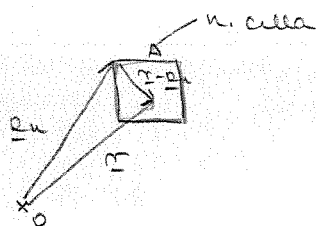 n. cella
Δ
r - R_n
R_n
r
O